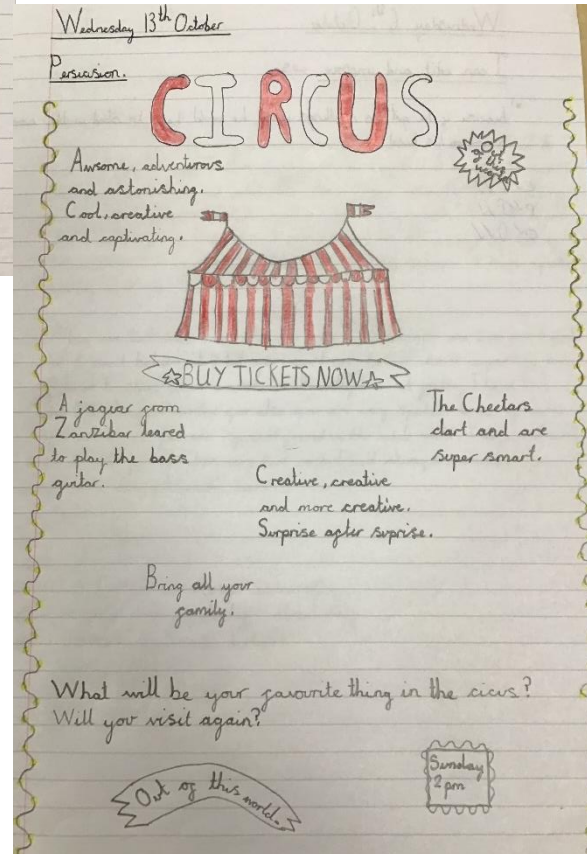 Wednesday 13th October
Persuasion.
CIRCUS
Awsome, adventurous
and astonishing.
Cool, creative
and captivating.
Out
of this
world
BUY TICKETS NOW
A jaguar from
Zanzibar leared
to play the bass
guitar.
The Cheetars
dart and are
super smart.
Creative, creative
and more creative.
Surprise after suprise.
Bring all your
family.
What will be your favourite thing in the cicus?
Will you visit again?
Out of this world.
Sunday
2pm